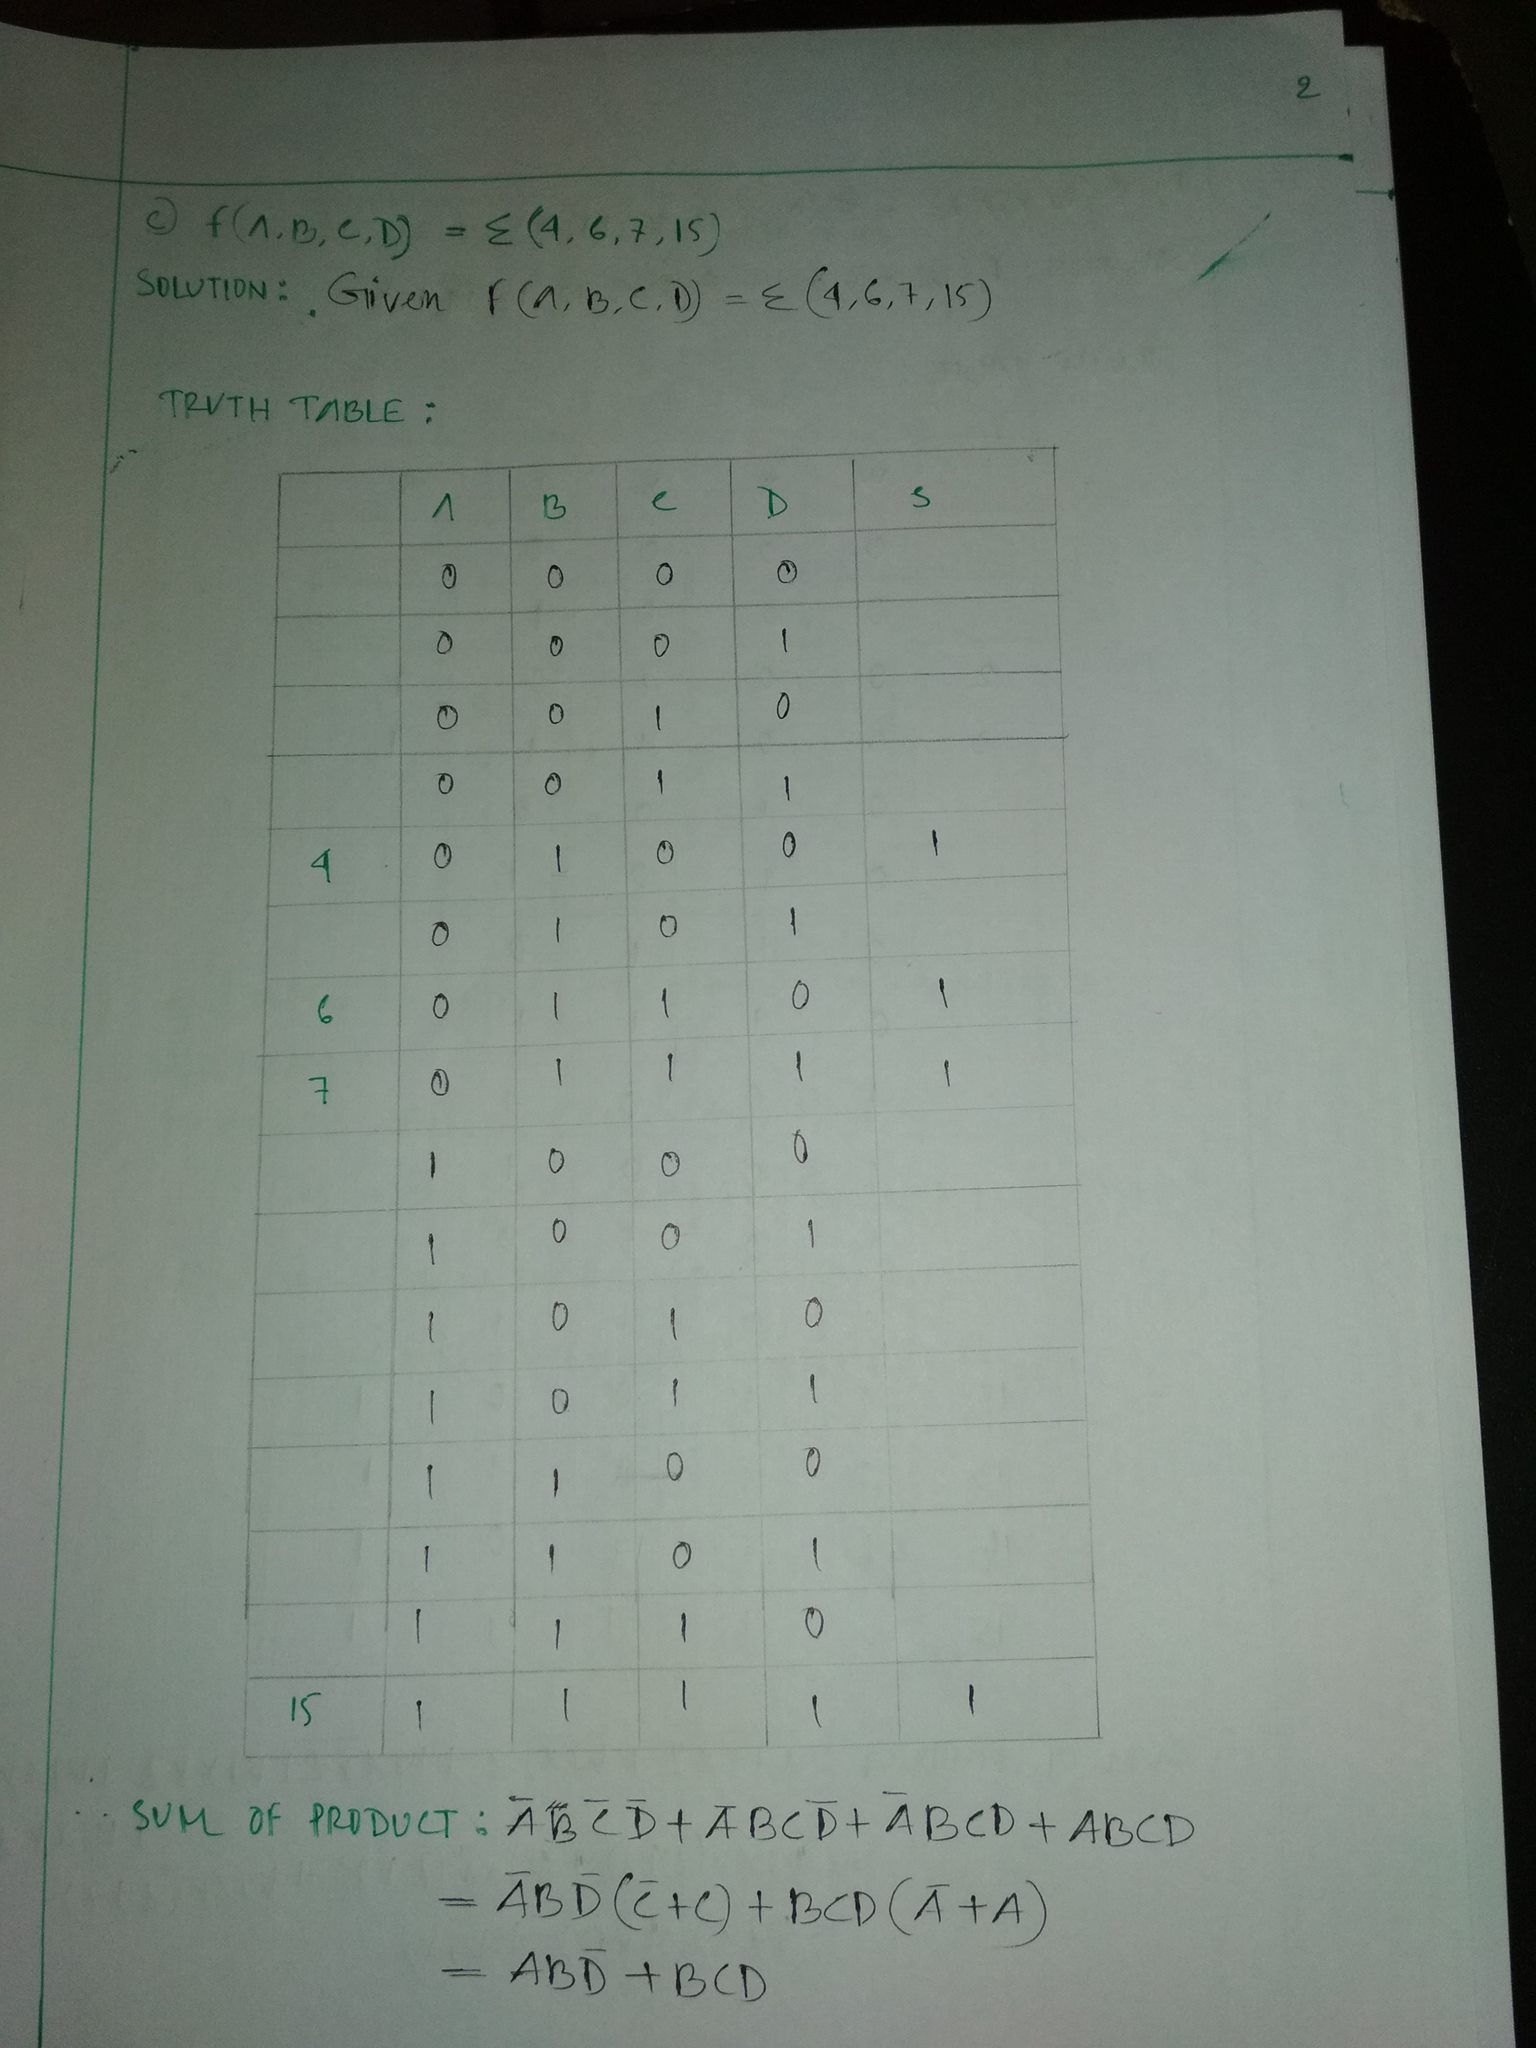 2
c) f(A,B,C,D) = Σ(4,6,7,15)
SOLUTION: Given f(A,B,C,D) = Σ(4,6,7,15)
TRUTH TABLE:
A B C D S
0 0 0 0
0 0 0 1
0 0 1 0
0 0 1 1
4 0 1 0 0 1
0 1 0 1
6 0 1 1 0 1
7 0 1 1 1 1
1 0 0 0
1 0 0 1
1 0 1 0
1 0 1 1
1 1 0 0
1 1 0 1
1 1 1 0
15 1 1 1 1 1
SUM OF PRODUCT: A̅BC̅D̅ + A̅BCD̅ + A̅BCD + ABCD
= A̅BD̅(C̅+C) + BCD(A̅+A)
= ABD̅ + BCD